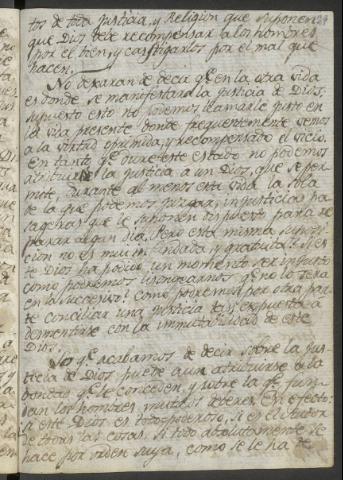 tos de toda Justicia, y Religion que suponen 24
que Dios debe recompensar a los hombres
por el bien, y castigarlos por el mal que
hacen.
No dexaran de decir qe. en la otra vida
es donde se manifestará la justicia de Dios,
supuesto esto no podemos llamarle justo en
la vida presente donde frequentemente vemos
a la virtud oprimida, y recompensado el vicio.
En tanto qe. dure este estado no podemos
atribuir la justicia a un Dios, que se per-
mite, durante al menos esta vida la sola
de la que podemos juzgar, injusticias pa-
sageras que le suponen dispuesto para re-
parar algun dia. Pero esta misma suposi-
cion no es mui infundada, y gratuita? Si es-
te Dios ha podido un momento ser injusto
como podremos lisongearnos qe. no lo será
en lo succesivo? Como podremos por otra par-
te conciliar una justicia tan expuesta a
desmentirse con la immutabilidad de este
Dios?
Lo qe. acabamos de decir sobre la Jus-
ticia de Dios puede aun atribuirse a la
bondad qe. le conceden, y sobre la qe. fun-
dan los hombres muchos deberes. En efecto:
si este Dios es todo poderoso, si es el Autor
de todas las cosas. Si todo absolutamente se
hace por orden suya, como se le ha de